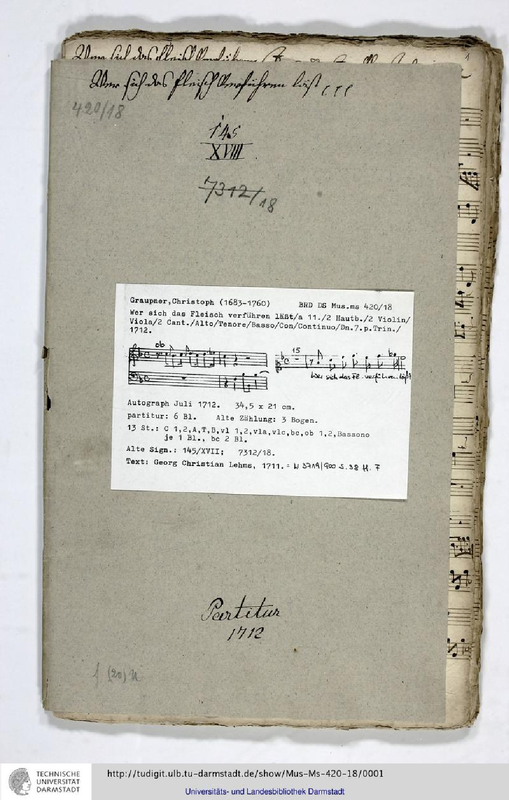 Wer sich das Fleisch verführen läst
Wer sich das Fleisch verführen läst
420/18
145
XVIII
7312/18
Graupner,Christoph (1683-1760) BRD DS Mus.ms 420/18
Wer sich das Fleisch verführen läßt/a 11./2 Hautb./2 Violin/
Viola/2 Cant./Alto/Tenore/Basso/Con/Continuo/Dn.7.p.Trin./
1712.
ob
15
Wer sich das Fl. verführen
Autograph Juli 1712. 34,5 x 21 cm.
partitur: 6 Bl. Alte Zählung: 3 Bogen.
13 St.: C 1,2,A,T,B,vl 1,2,vla,vlc,bc,ob 1,2,Bassono
je 1 Bl., bc 2 Bl.
Alte Sign.: 145/XVII; 7312/18.
Text: Georg Christian Lehms, 1711. S. 38
Partitur
1712
TECHNISCHE
UNIVERSITÄT
DARMSTADT
http://tudigit.ulb.tu-darmstadt.de/show/Mus-Ms-420-18/0001
Universitäts- und Landesbibliothek Darmstadt